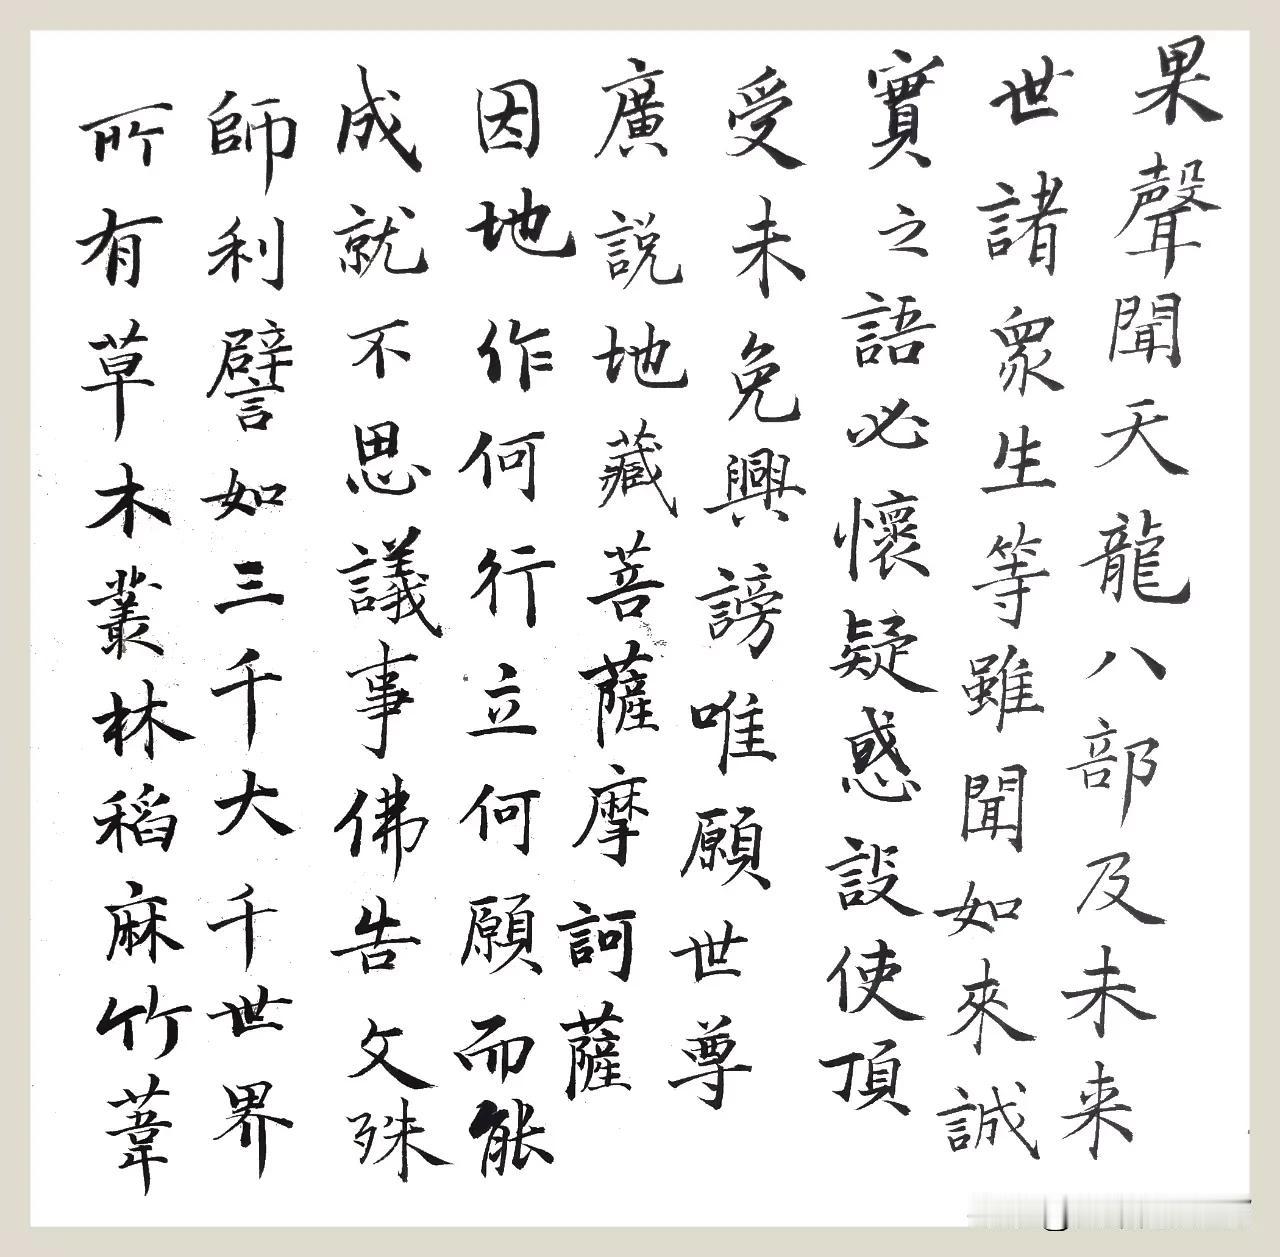 果聲聞天龍八部及未来
世諸眾生等雖聞如來誠
實之語必懷疑惑設使頂
受未免興謗唯願世尊
廣説地藏菩薩摩訶薩
因地作何行立何願而能
成就不思議事佛告文殊
師利譬如三千大千世界
所有草木叢林稻麻竹葦